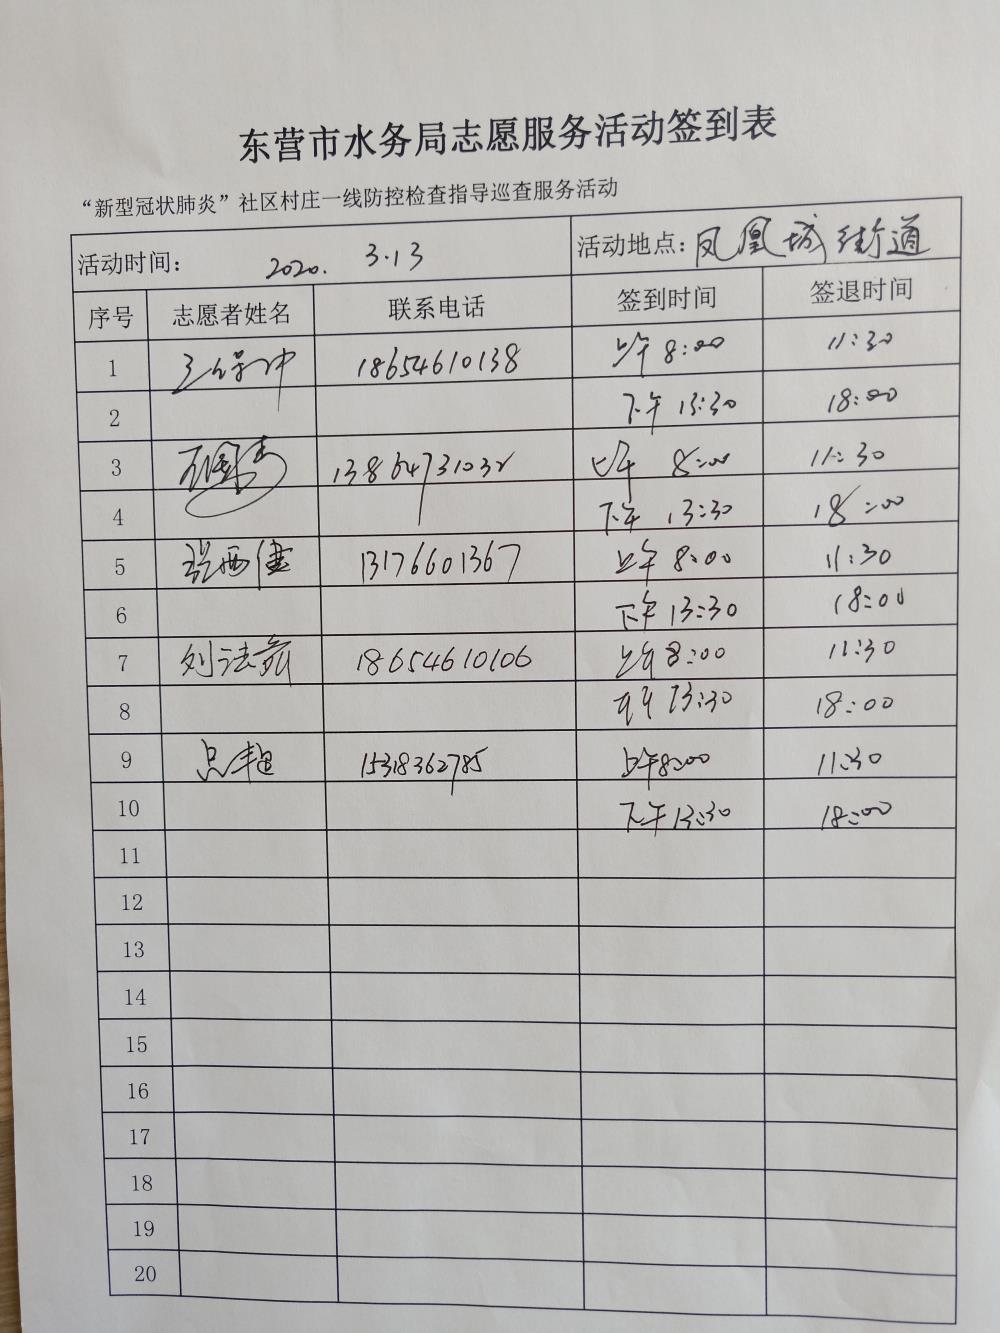 东营市水务局志愿服务活动签到表
“新型冠状肺炎”社区村庄一线防控检查指导巡查服务活动
活动时间： 2020. 3.13 活动地点：凤凰城街道
序号 志愿者姓名 联系电话 签到时间 签退时间
1 18654610138 上午 8:00 11:30
2 下午 13:30 18:00
3 13864731032 上午 8:00 11:30
4 下午 13:30 18:00
5 张西健 13176601367 上午 8:00 11:30
6 下午 13:30 18:00
7 刘法 18654610106 上午 8:00 11:30
8 下午 13:30 18:00
9 15318362785 上午 8:00 11:30
10 下午 13:30 18:00
11
12
13
14
15
16
17
18
19
20